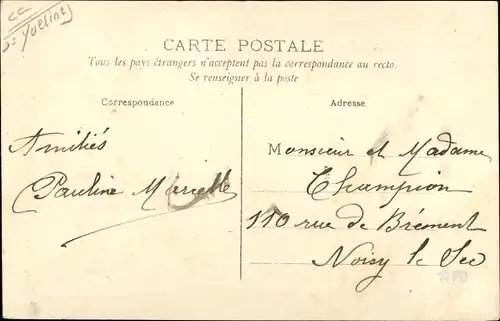 CC
Yvelines
CARTE POSTALE
Tous les pays étrangers n'acceptent pas la correspondance au recto.
Se renseigner à la poste
Correspondance
Adresse
Amitiés
Pauline Marcelle
Monsieur et Madame
Champion
110 rue de Brément
Noisy le Sec